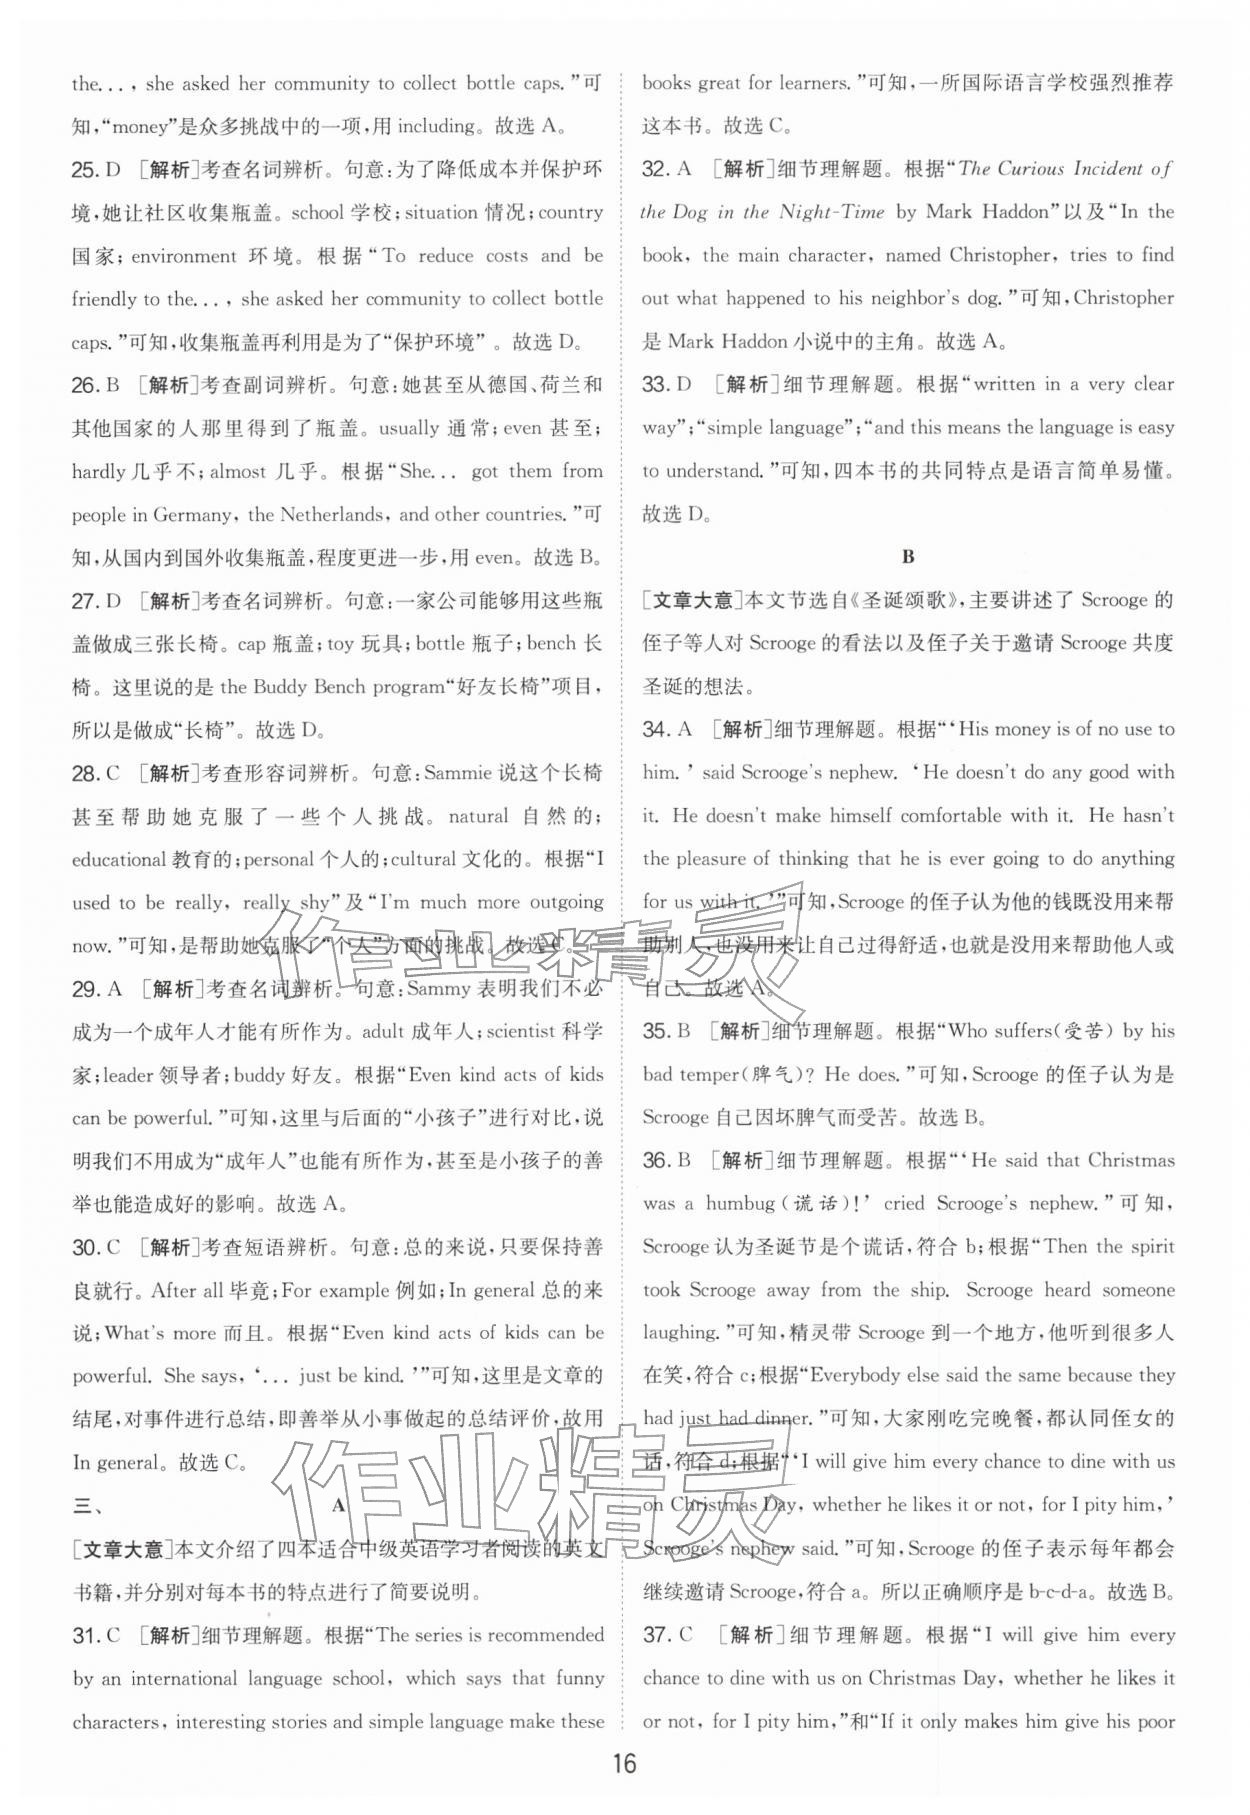 the...，she asked her community to collect bottle caps."可
知，"money"是众多挑战中的一项，用 including。故选 A。
25. D ［解析］考查名词辨析。句意：为了降低成本并保护环
境，她让社区收集瓶盖。school 学校；situation 情况；country
国家；environment 环境。根据"To reduce costs and be
friendly to the...，she asked her community to collect bottle
caps."可知，收集瓶盖再利用是为了"保护环境"。故选 D。
26. B ［解析］考查副词辨析。句意：她甚至从德国、荷兰和
其他国家的人那里得到了瓶盖。usually 通常；even 甚至；
hardly 几乎不；almost 几乎。根据"She... got them from
people in Germany, the Netherlands, and other countries."可
知，从国内到国外收集瓶盖，程度更进一步，用 even。故选 B。
27. D ［解析］考查名词辨析。句意：一家公司能够用这些瓶
盖做成三张长椅。cap 瓶盖；toy 玩具；bottle 瓶子；bench 长
椅。这里说的是 the Buddy Bench program"好友长椅"项目，
所以是做成"长椅"。故选 D。
28. C ［解析］考查形容词辨析。句意：Sammie 说这个长椅
甚至帮助她克服了一些个人挑战。natural 自然的；
educational 教育的；personal 个人的；cultural 文化的。根据"I
used to be really, really shy"及"I'm much more outgoing
now."可知，是帮助她克服了"个人"方面的挑战。故选 C。
29. A ［解析］考查名词辨析。句意：Sammy 表明我们不必
成为一个成年人才能有所作为。adult 成年人；scientist 科学
家；leader 领导者；buddy 好友。根据"Even kind acts of kids
can be powerful."可知，这里与后面的"小孩子"进行对比，说
明我们不用成为"成年人"也能有所作为，甚至是小孩子的善
举也能造成好的影响。故选 A。
30. C ［解析］考查短语辨析。句意：总的来说，只要保持善
良就行。After all 毕竟；For example 例如；In general 总的来
说；What's more 而且。根据"Even kind acts of kids can be
powerful. She says, '... just be kind.'"可知，这里是文章的
结尾，对事件进行总结，即善举从小事做起的总结评价，故用
In general。故选 C。
三、 A
［文章大意］本文介绍了四本适合中级英语学习者阅读的英文
书籍，并分别对每本书的特点进行了简要说明。
31. C ［解析］细节理解题。根据"The series is recommended
by an international language school, which says that funny
characters, interesting stories and simple language make these
books great for learners."可知，一所国际语言学校强烈推荐
这本书。故选 C。
32. A ［解析］细节理解题。根据"The Curious Incident of
the Dog in the Night-Time by Mark Haddon"以及"In the
book, the main character, named Christopher, tries to find
out what happened to his neighbor's dog."可知，Christopher
是 Mark Haddon 小说中的主角。故选 A。
33. D ［解析］细节理解题。根据"written in a very clear
way"；"simple language"；"and this means the language is easy
to understand."可知，四本书的共同特点是语言简单易懂。
故选 D。
B
［文章大意］本文节选自《圣诞颂歌》，主要讲述了 Scrooge 的
侄子等人对 Scrooge 的看法以及侄子关于邀请 Scrooge 共度
圣诞的想法。
34. A ［解析］细节理解题。根据"'His money is of no use to
him.' said Scrooge's nephew. 'He doesn't do any good with
it. He doesn't make himself comfortable with it. He hasn't
the pleasure of thinking that he is ever going to do anything
for us with it.'"可知，Scrooge 的侄子认为他的钱既没用来帮
助别人，也没用来让自己过得舒适，也就是没用来帮助他人或
自己。故选 A。
35. B ［解析］细节理解题。根据"Who suffers(受苦) by his
bad temper(脾气)? He does."可知，Scrooge 的侄子认为是
Scrooge 自己因坏脾气而受苦。故选 B。
36. B ［解析］细节理解题。根据"'He said that Christmas
was a humbug(谎话)!' cried Scrooge's nephew."可知，
Scrooge 认为圣诞节是个谎话，符合 b；根据"Then the spirit
took Scrooge away from the ship. Scrooge heard someone
laughing."可知，精灵带 Scrooge 到一个地方，他听到很多人
在笑，符合 c；根据"Everybody else said the same because they
had just had dinner."可知，大家刚吃完晚餐，都认同侄女的
话，符合 d；根据"'I will give him every chance to dine with us
on Christmas Day, whether he likes it or not, for I pity him,'
Scrooge's nephew said."可知，Scrooge 的侄子表示每年都会
继续邀请 Scrooge，符合 a。所以正确顺序是 b-c-d-a。故选 B。
37. C ［解析］细节理解题。根据"I will give him every
chance to dine with us on Christmas Day, whether he likes it
or not, for I pity him,"和"If it only makes him give his poor
16
作业精灵
作业精灵